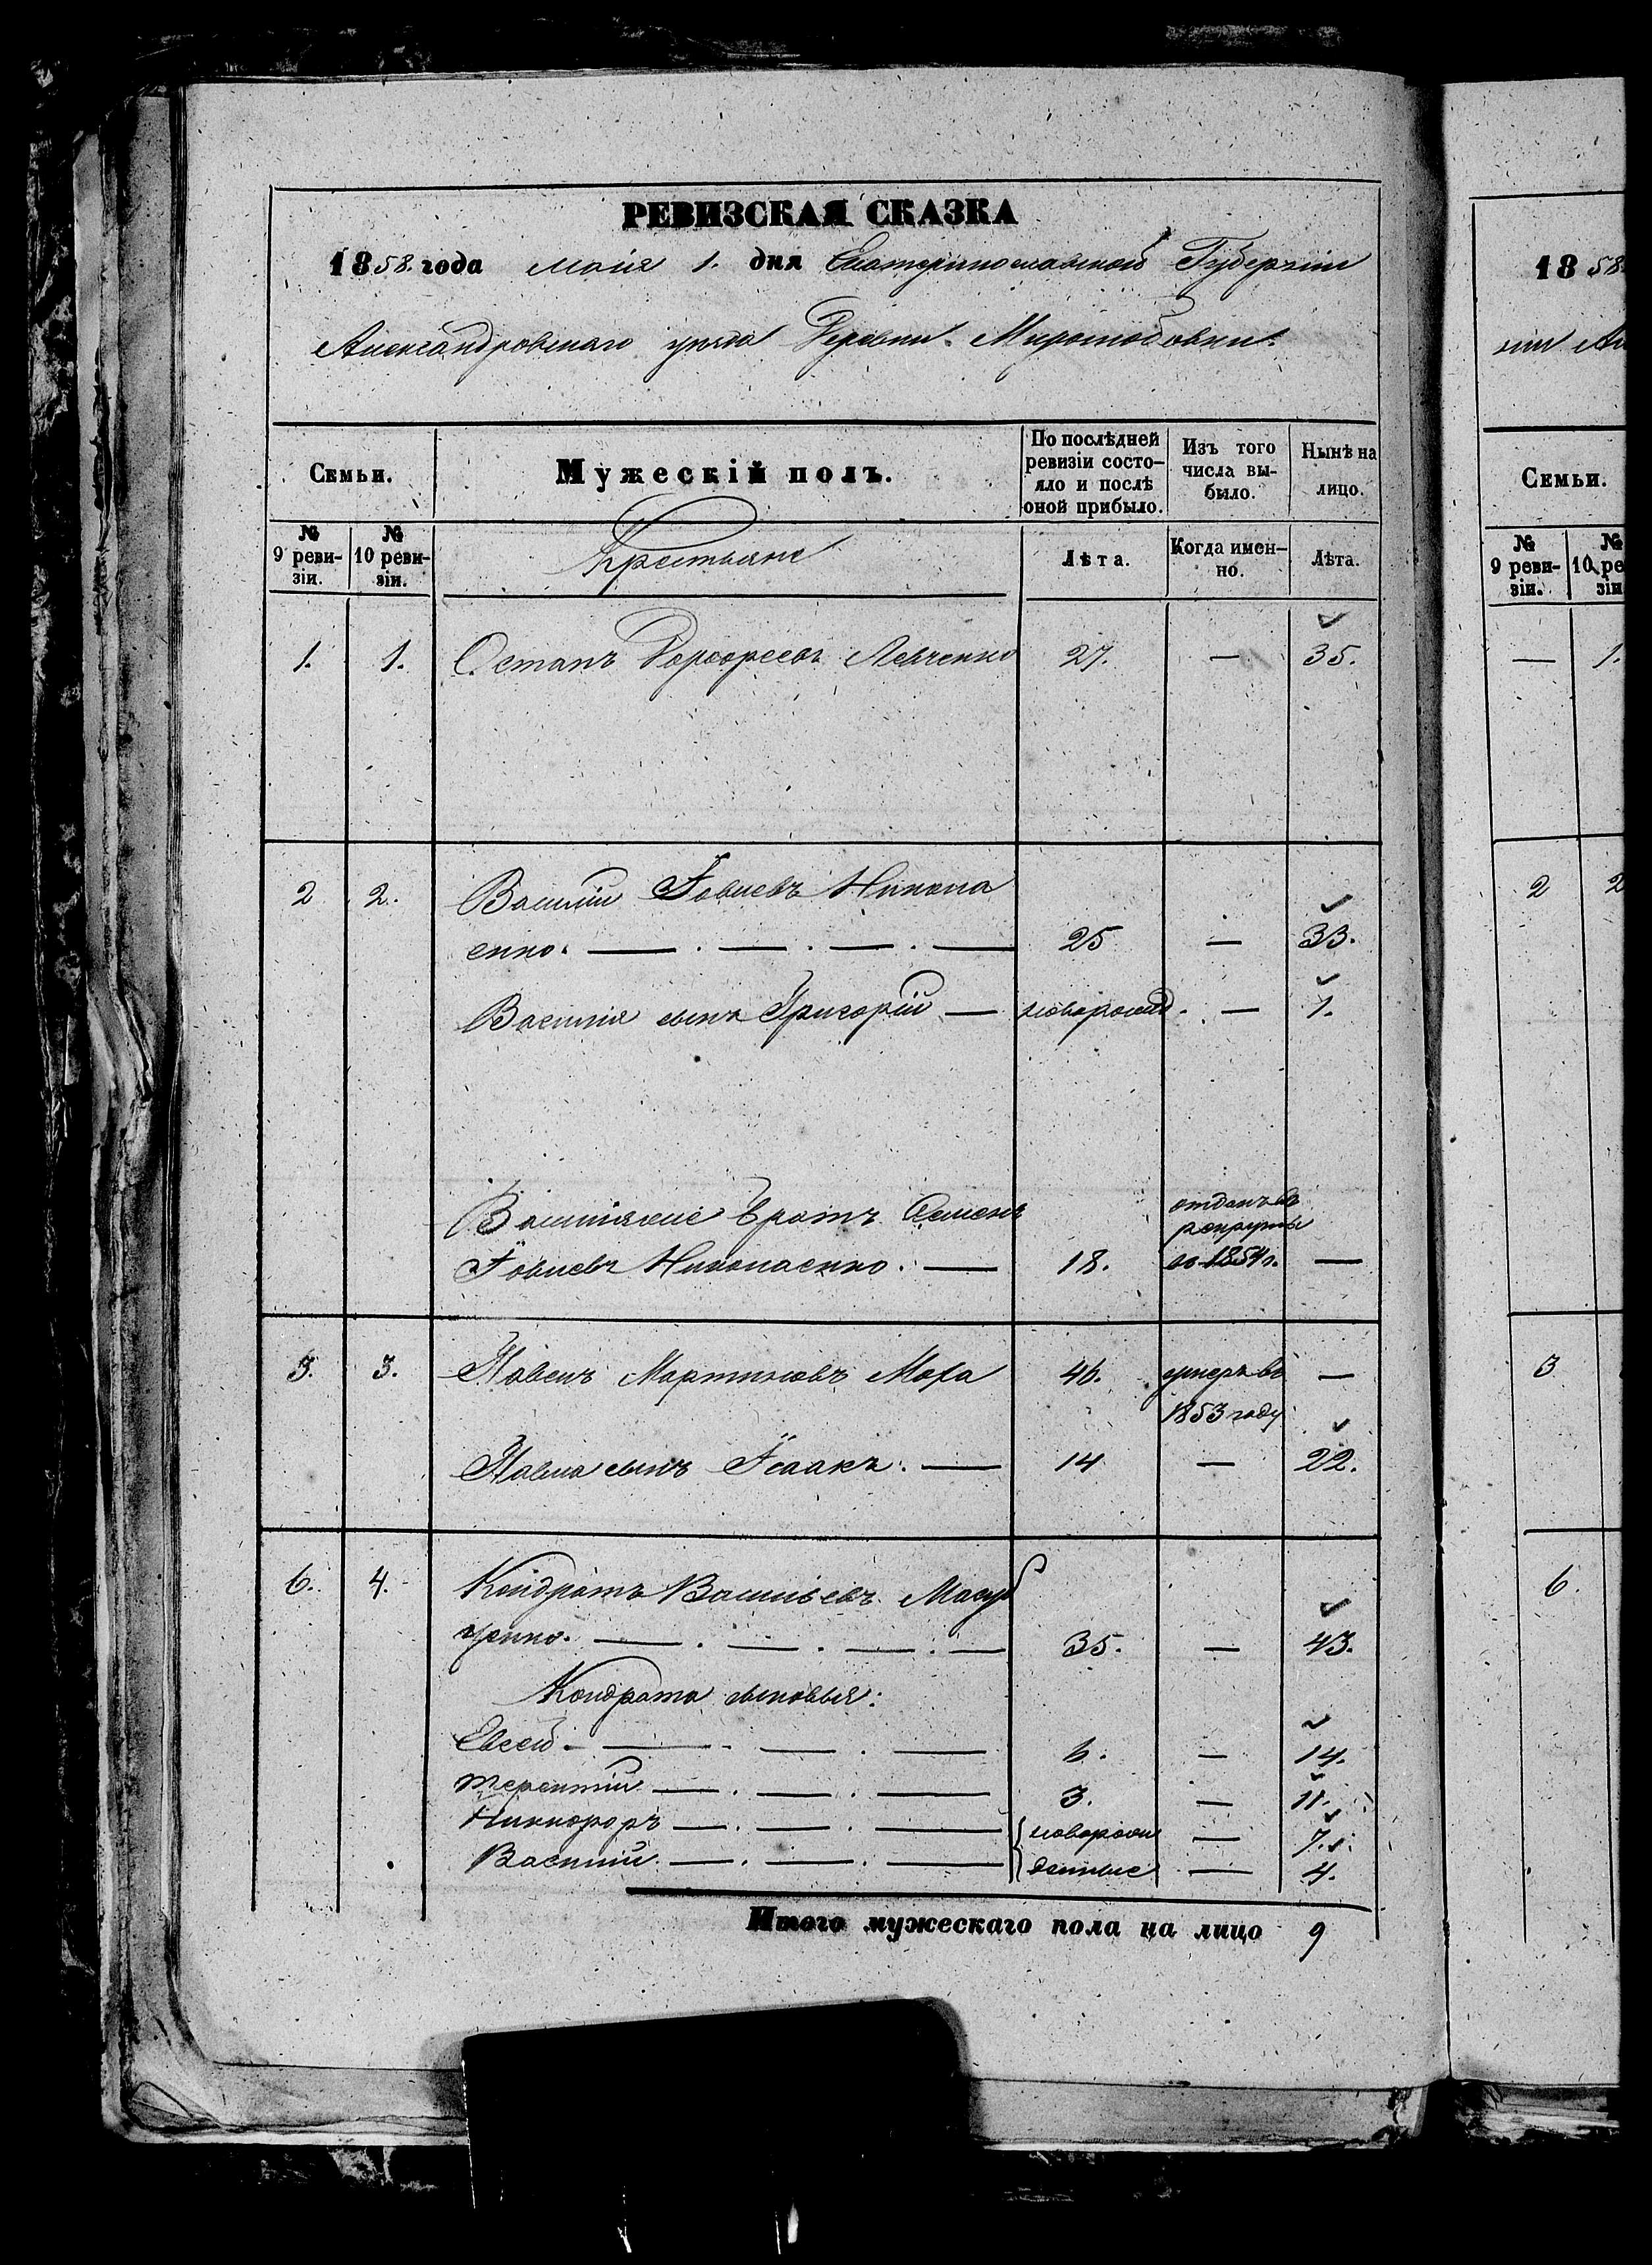 РЕВИЗСКАЯ СКАЗКА
1858. года мая 1. дня Екатеринославской Губернии
Александровскаго уезда Деревни Миролюбовки.
Семьи.
Мужескій полъ.
По послѣдней ревизіи состояло и послѣ оной прибыло.
Изъ того числа выбыло.
Нынѣ на лицо.
№ 9 ревизіи.
№ 10 ревизіи.
Крестьяне
Лѣта.
Когда именно.
Лѣта.
1. 1. Остапъ Левченко 27. — 35.
2. 2. Василий Іовлевъ Никола
енко. — . — . — . — 25 — 33.
Василия сынъ Григорій — новорожд. — 1.
Василияже братъ Семенъ отданъ въ рекруты
Іовлевъ Николаенко. — 18. 1854 г. —
3. 3. Павелъ Мартиновъ Моха 46. умеръ въ —
1853 году
Павла сынъ Ісаакъ. — 14 — 22.
6. 4. Кондратъ Васильевъ
ченко. — . — . — . — 35. — 43.
Кондрата сыновья:
Евсей — — . — 6. — 14.
Терентий — . — . — 3. — 11.
Никифоръ — . — . — новорож — 7.
Василий. — . — . — денные — 4.
Итого мужескаго пола на лицо 9
18 58
нии Ал
Семьи.
№ 9 ревизіи.
№ 10 ре зіи
— 1.
2 2
3
6.